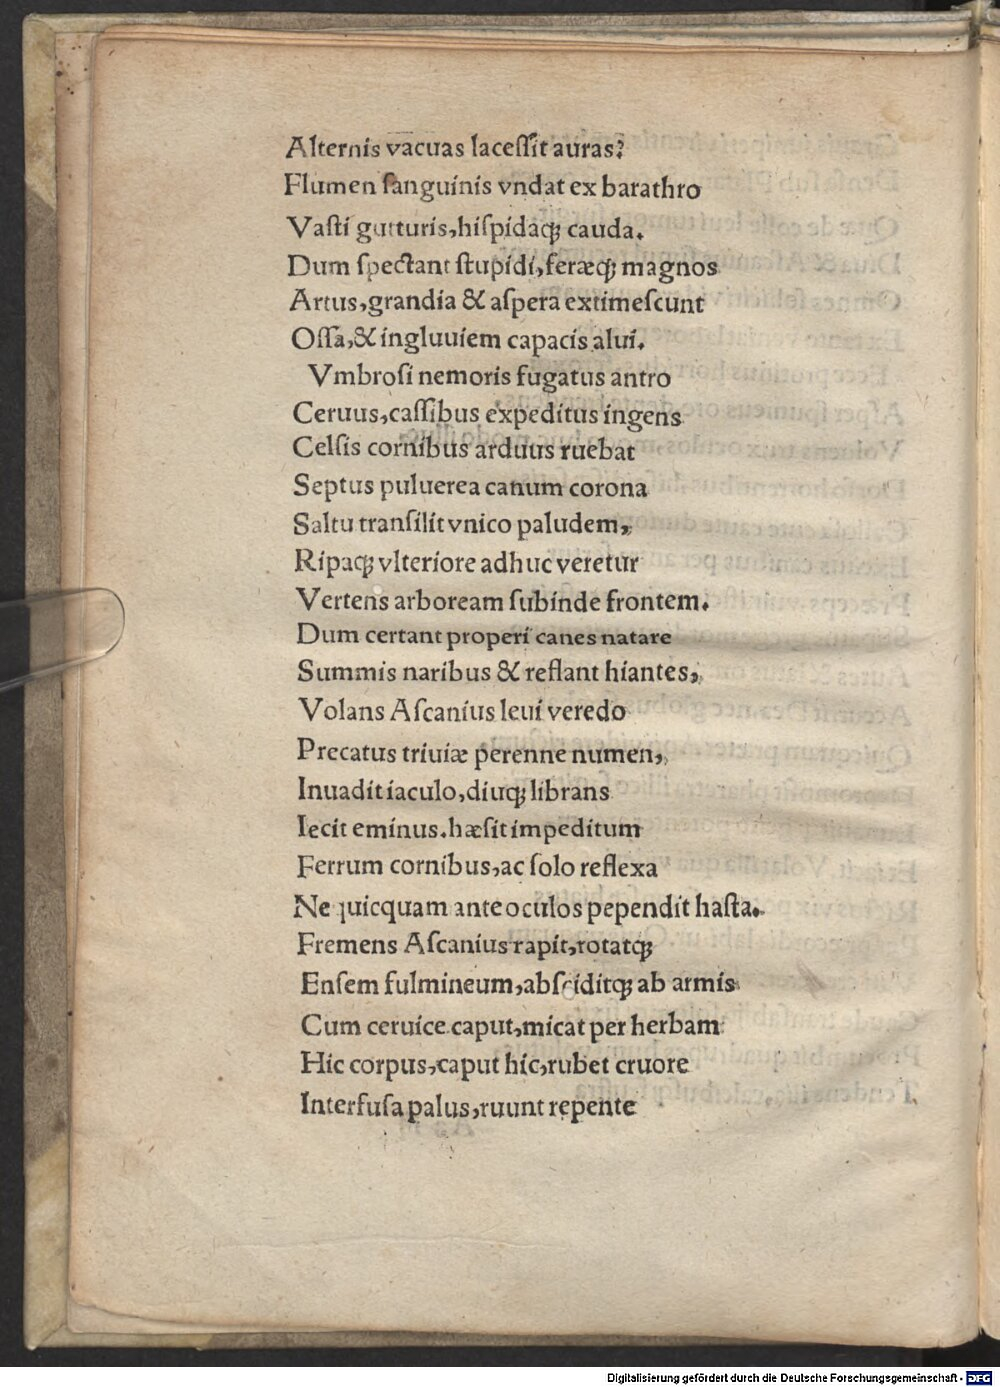 Alternis vacuas laceſſit auras?
Flumen ſanguinis vndat ex barathro
Vaſti gutturis, hiſpidaqꝫ cauda.
Dum ſpectant ſtupidi, feræqꝫ magnos
Artus, grandia & aſpera extimeſcunt
Oſſa, & ingluuiem capacis alui.
Vmbroſi nemoris fugatus antro
Ceruus, caſſibus expeditus ingens
Celſis cornibus arduus ruebat
Septus puluerea canum corona
Saltu tranſilit vnico paludem,
Ripaqꝫ vlteriore adhuc veretur
Vertens arboream ſubinde frontem.
Dum certant properi canes natare
Summis naribus & reflant hiantes,
Volans Aſcanius leui veredo
Precatus triuiæ perenne numen,
Inuadit iaculo, diuqꝫ librans
Iecit eminus. hæſit impeditum
Ferrum cornibus, ac ſolo reflexa
Ne quicquam ante oculos pependit haſta.
Fremens Aſcanius rapit, rotatqꝫ
Enſem fulmineum, abſciditqꝫ ab armis
Cum ceruice caput, micat per herbam
Hic corpus, caput hic, rubet cruore
Interfuſa palus, ruunt repente
Digitalisierung gefördert durch die Deutsche Forschungsgemeinschaft - DFG